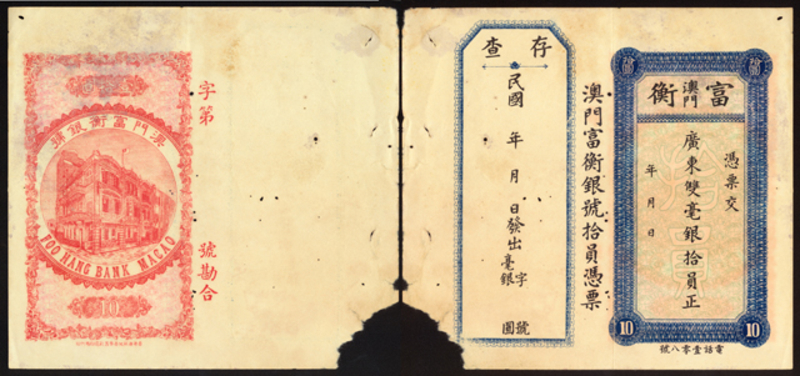 拾圓
拾圓
富
澳門
衡
憑票交
廣東雙毫銀拾員正
年月日
10
10
電話壹零八號
澳門富衡銀號拾員憑票
存查
民國 年 月 日發出
字
毫銀
號
圓
字第
號勘合
澳門富衡銀號
FOO HANG BANK MACAO
10